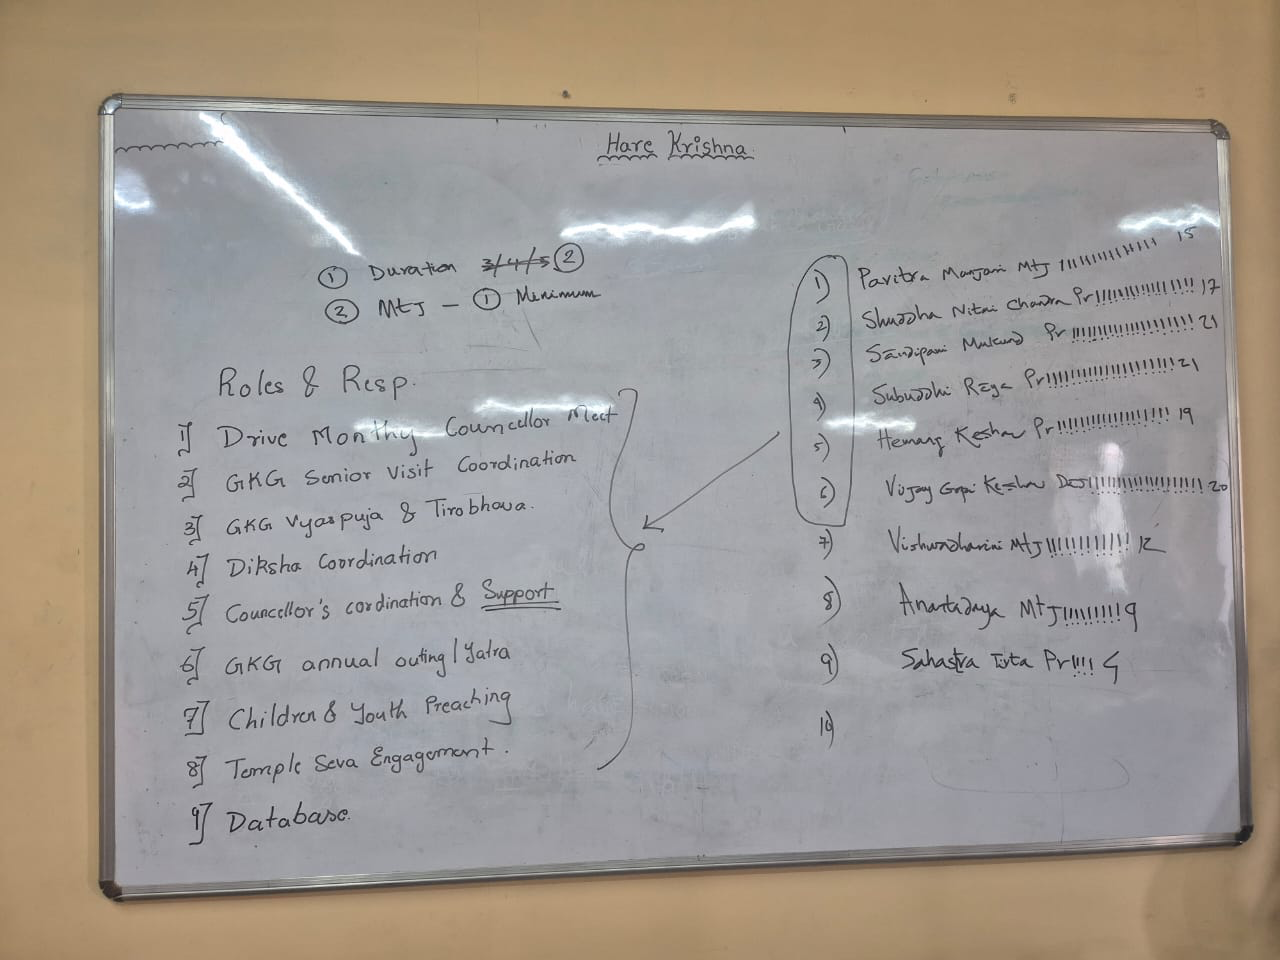 Hare Krishna
① Duration 3/4/5 ②
② MtJ - ① Minimum
Roles & Resp.
1] Drive Monthy Councellor Meet
2] GKG Senior Visit Coordination
3] GKG Vyaspuja & Tirobhava.
4] Diksha Coordination
5] Councellor's cordination & Support
6] GKG annual outing/Yatra
7] Children & Youth Preaching
8] Temple Seva Engagement.
9] Database.
1) Pavitra Manjari MtJ 15
2) Shuddha Nitai Chandra Pr 17
3) Sandipani Mukund Pr 21
4) Subuddhi Raya Pr 21
5) Hemang Keshav Pr 19
6) Vijay Gopi Keshav Das 20
7) Vishwadharini MtJ 12
8) Anantadaya MtJ 9
9) Sahastra Tirta Pr 4
10)